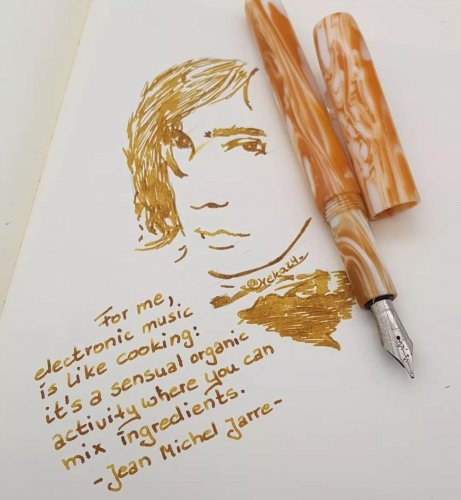 For me,
electronic music
is like cooking:
it's a sensual organic
activity where you can
mix ingredients.
-Jean Michel Jarre-